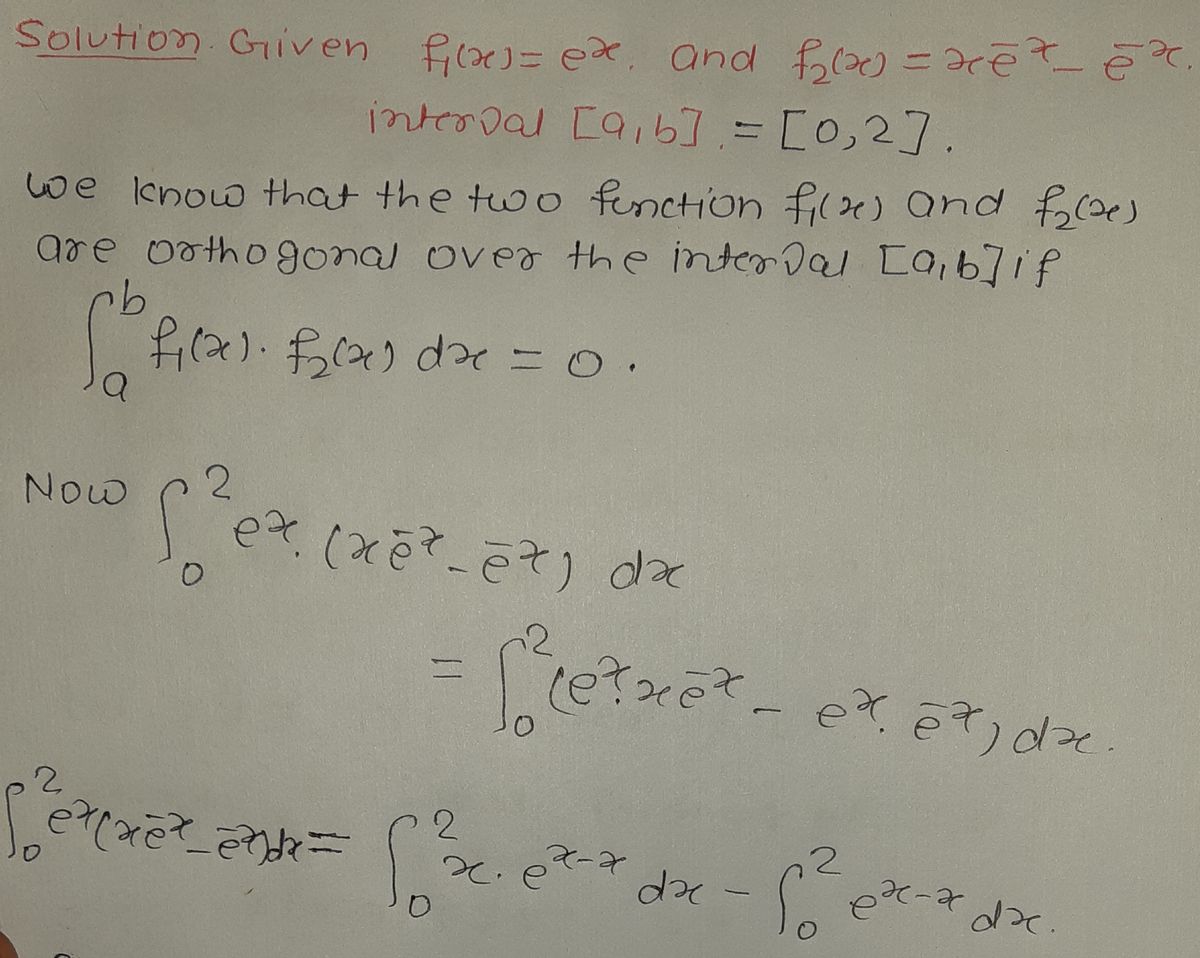 Solution. Given f₁(x) = eˣ. and f₂(x) = xe⁻ˣ - e⁻ˣ.
interval [a,b]. = [0,2].
we know that the two function f₁(x) and f₂(x)
are orthogonal over the interval [a,b] if
∫ₐᵇ f₁(x). f₂(x) dx = 0.
Now ∫₀² eˣ. (xe⁻ˣ - e⁻ˣ) dx
= ∫₀² (eˣ. xe⁻ˣ - eˣ. e⁻ˣ) dx.
∫₀² eˣ(xe⁻ˣ - e⁻ˣ)dx = ∫₀² x. eˣ⁻ˣ dx - ∫₀² eˣ⁻ˣ dx.